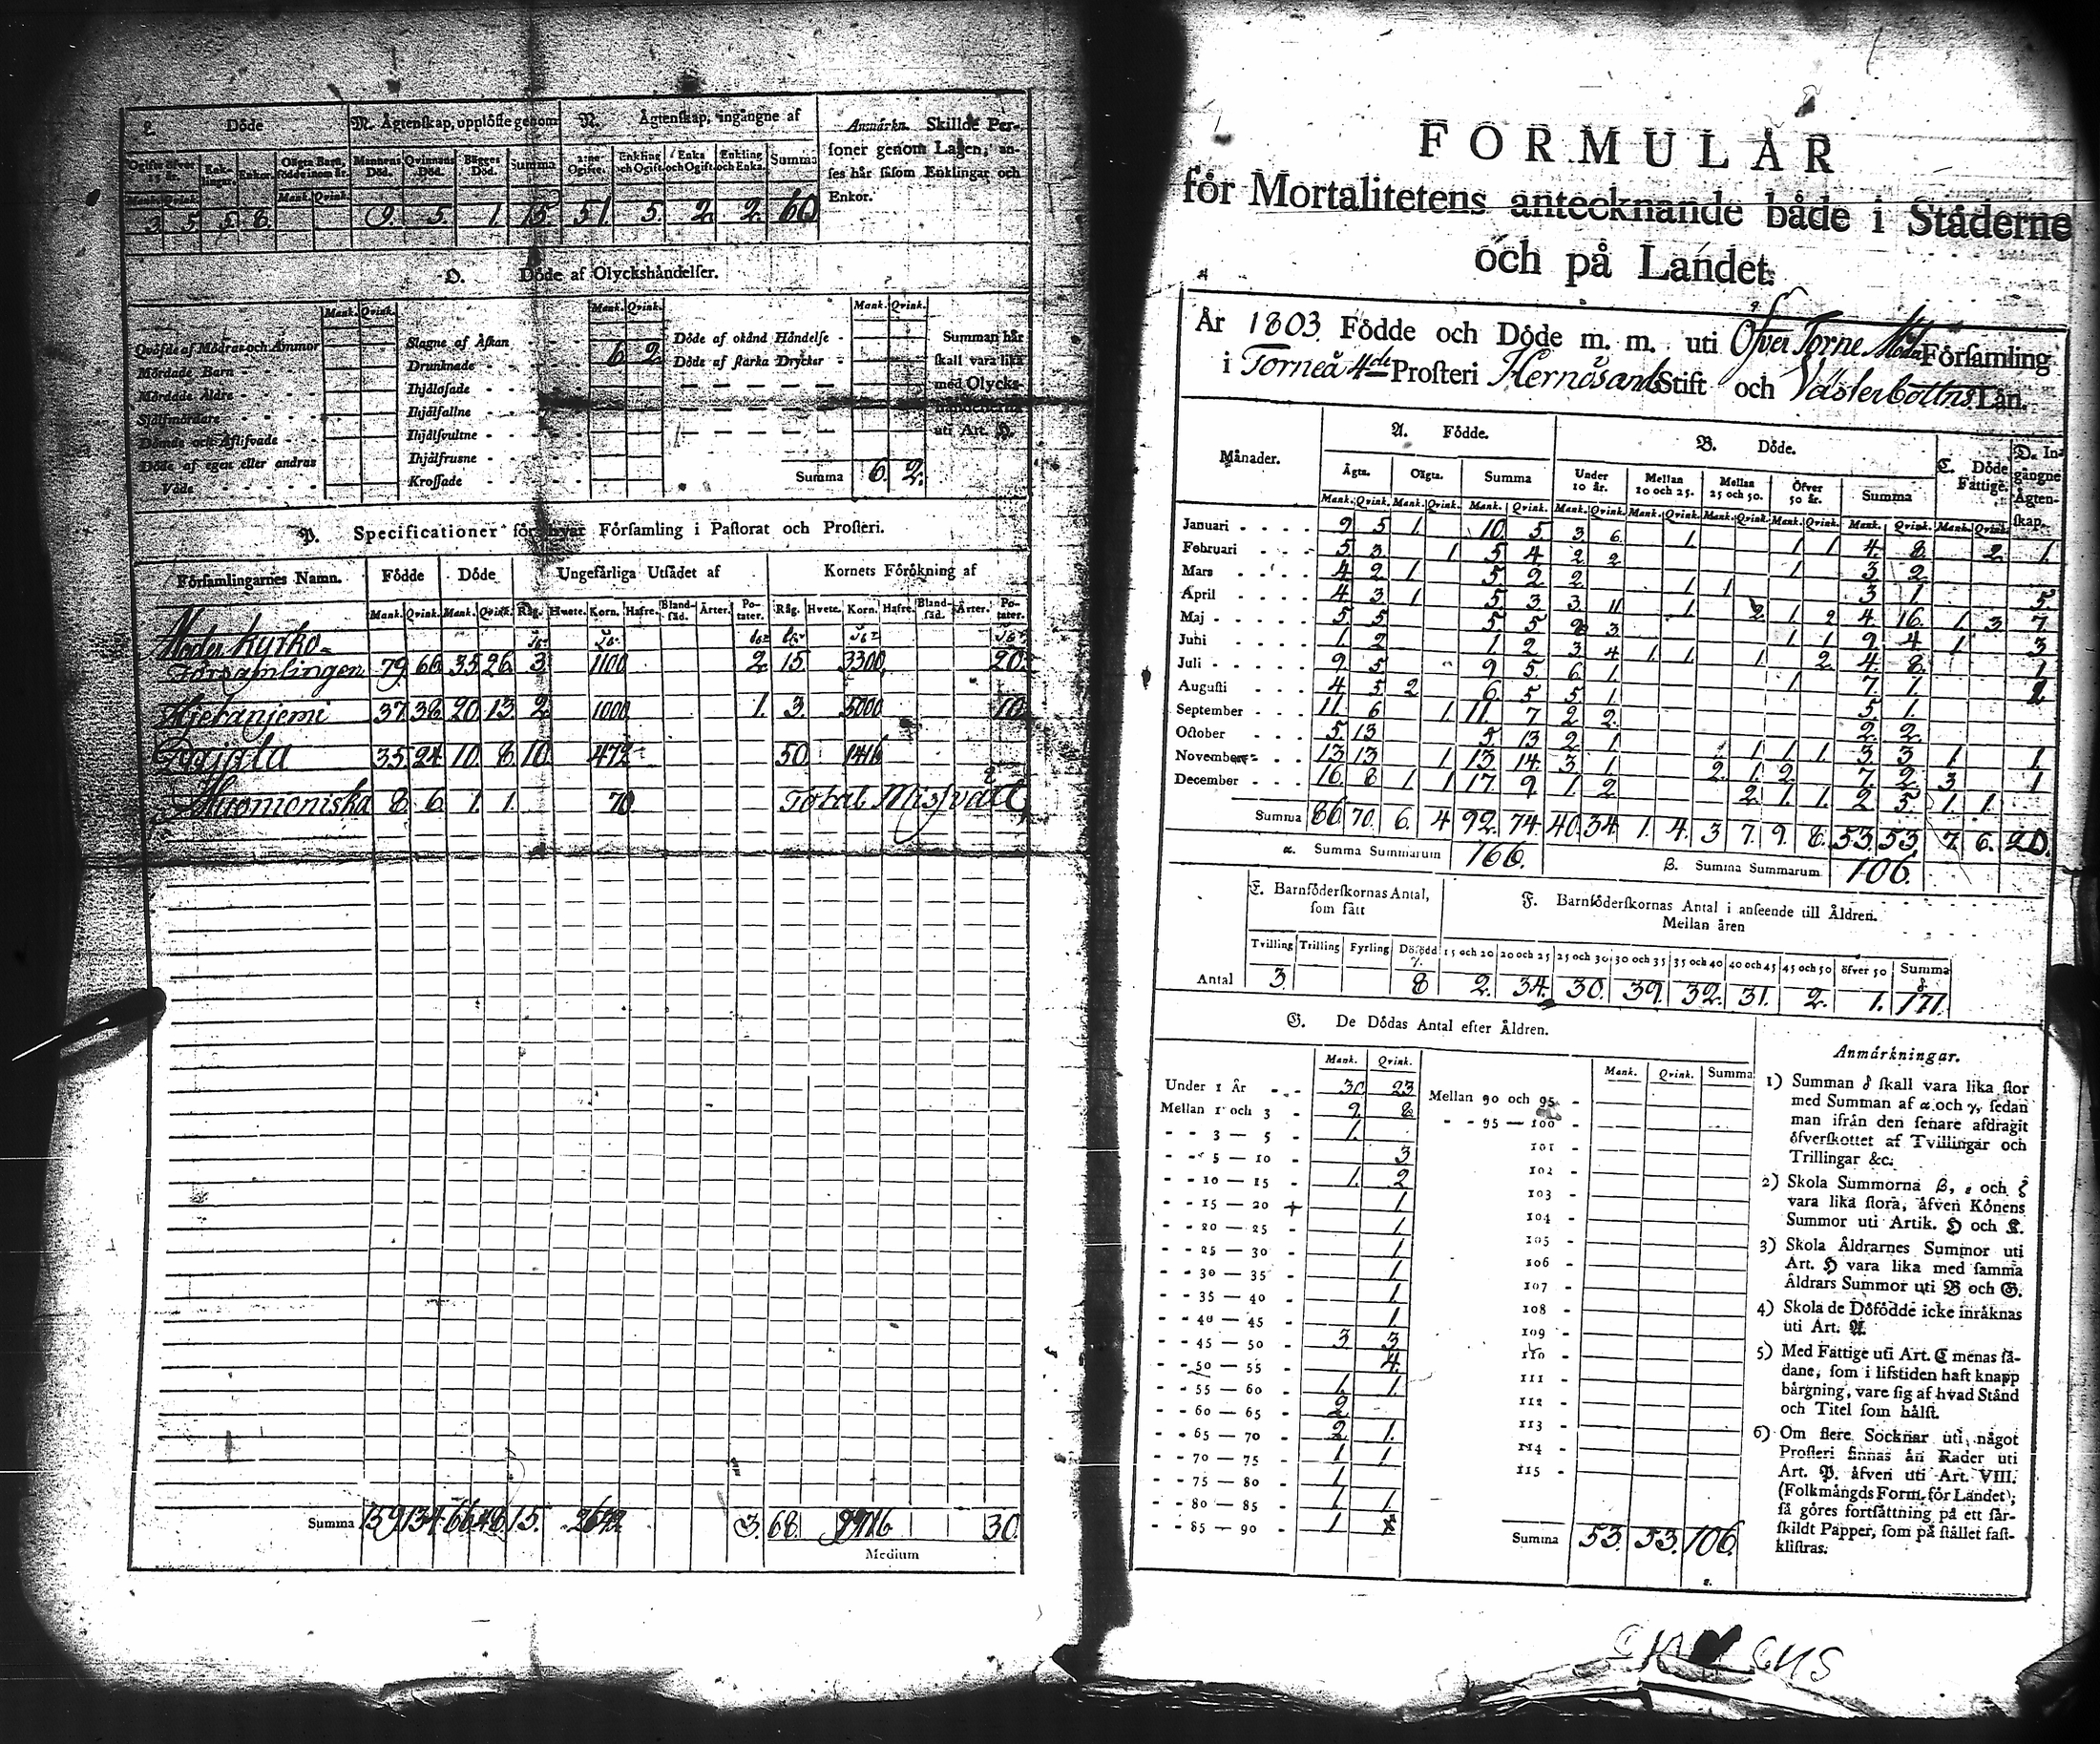 L. Döde
M. Ägtenskap, upplöste genom
N. Ägtenskap, ingångne af
Anmärkn. Skillde Per-
soner genom Lagen, an-
ses här såsom Enklingar och
Enkor.
Ogifte öfver 15 år. Enk-lingar. Enkor. Oägta Barn, födde inom år. Mannens Död. Qvinnans Död. Bägges Död. Summa 2:ne Ogifte. Enkling och Ogift. Enka och Ogift. Enkling och Enka. Summa
Mank. Qvink. Mank. Qvink.
3. 5. 5. 8. 9. 5. 1. 15. 51. 5. 2. 2. 60
O. Döde af Olyckshändelser.
Mank. Qvink. Mank. Qvink. Mank. Qvink.
Qväfde af Mödrar och Ammor
Mördade Barn
Mördade Äldre
Sjelfmördare
Dömde och Aflifvade
Döde af egen eller andras
Våde
Slagne af Åskan
Drunknade 6 2
Ihjälosade
Ihjälfallne
Ihjälsvultne
Ihjälfrusne
Krossade
Döde af okänd Händelse
Döde af starka Drycker
Summa 6. 2.
Summan här
skall vara lika
med Olycks-
händelserna
uti Art. H.
P. Specificationer för hvar Församling i Pastorat och Prosteri.
Församlingarnes Namn. Födde Döde Ungefärliga Utsädet af Kornets Förökning af
Mank. Qvink. Mank. Qvink. Råg. Hvete. Korn. Hafre. Bland-säd. Ärter. Po-tater. Råg. Hvete. Korn. Hafre. Bland-säd. Ärter. Po-tater.
Moder kyrko-
Församlingen 79 66 35 26 3 1100 2. 15. 3300 20.
Hjetanjemi 37 38 20 13. 2. 1000 1. 3. 5000 10.
35 24 10. 8 10. 472 50. 1416
Muonioniska 8 6 1. 1. 70 Total Missväxt
Summa 159 134 66 48 15. 2642 3. 68. 9716 30.
Medium
FORMULÄR
för Mortalitetens antecknande både i Städerne
och på Landet.
År 1803 Födde och Döde m. m. uti Öfver Torne Moder Församling
i Torneå 4de Prosteri Hernösands Stift och Västerbottns Län.
Månader. A. Födde. B. Döde. C. Döde Fattige. D. In-gångne Ägten-skap.
Ägta. Oägta. Summa Under 10 år. Mellan 10 och 25. Mellan 25 och 50. Öfver 50 år. Summa
Mank. Qvink. Mank. Qvink. Mank. Qvink. Mank. Qvink. Mank. Qvink. Mank. Qvink. Mank. Qvink. Mank. Qvink. Mank. Qvink.
Januari 9 5 1. 10. 5. 3 6. 1. 1 1 4. 8. 2. 1.
Februari 5 3. 1 5 4 2 2 1. 3 2
Mars 4 2 1 5. 2 2 1 1 3 1 5.
April 4 3 1 5 3 3 11 1 2 1 2 4 16. 1. 3 7
Maj 5 5 5 5 8 3 1 1 9 4 1 3
Juni 1. 2 1 2 3 4 1. 1. 1. 2. 4. 8. 1
Juli 9 5 9 5 6 1. 1 7. 1. 2
Augusti 4 5 2 6 5 5 1. 5 1.
September 11. 6 1. 11. 7 2 2. 2. 2.
October 5 13 5 13 2 1 1 1 1 1. 3 3 1. 1.
November 13 13 1 13. 14. 3 1 2. 1. 2. 7. 2. 3 1
December 16. 8 1 1 17. 9 1. 2 2. 1. 1. 2 5. 1. 1.
Summa 86 70. 6. 4 92. 74. 40. 34. 1. 4. 3 7. 9. 8. 53. 53. 7. 6. 20.
α. Summa Summarum 166. β. Summa Summarum 106.
E. Barnföderskornas Antal,
som fått
F. Barnföderskornas Antal i anseende till Åldren.
Mellan åren
Tvilling Trilling Fyrling Dödfödd γ. 15 och 20 20 och 25 25 och 30 30 och 35 35 och 40 40 och 45 45 och 50 öfver 50 Summa δ
Antal 3. 8 2. 34. 30. 39. 32. 31. 2. 1. 171.
G. De Dödas Antal efter Åldren.
Mank. Qvink. Mank. Qvink. Summa
Under 1 År 30 23
Mellan 1 och 3 9. 8
3 — 5 1.
5 — 10 3
10 — 15 1. 2
15 — 20 1
20 — 25 1
25 — 30 1
30 — 35 1
35 — 40 1
40 — 45 1
45 — 50 3 3
50 — 55 4.
55 — 60 1. 1.
60 — 65 2
65 — 70 2 1.
70 — 75 1 1
75 — 80 1
80 — 85 1. 1
85 — 90 1
Mellan 90 och 95
95 — 100
101
102
103
104
105
106
107
108
109
110
111
112
113
114
115
Summa 53. 53. 106.
ε.
Anmärkningar.
1) Summan δ skall vara lika stor
med Summan af α och γ, sedan
man ifrån den senare afdragit
öfverskottet af Tvillingar och
Trillingar &c.
2) Skola Summorna β, ε och ζ
vara lika stora, äfven Könens
Summor uti Artik. H och K.
3) Skola Åldrarnes Summor uti
Art. H vara lika med samma
Åldrars Summor uti B och G.
4) Skola de Dödfödde icke inräknas
uti Art. A.
5) Med Fattige uti Art. C menas så-
dane, som i lifstiden haft knapp
bärgning, vare sig af hvad Stånd
och Titel som hälst.
6) Om flere Socknar uti något
Prosteri finnas än Rader uti
Art. P. äfven uti Art. VIII.
(Folkmängds Form. för Landet);
så göres fortsättning på ett sär-
skildt Papper, som på stället fast-
klistras.